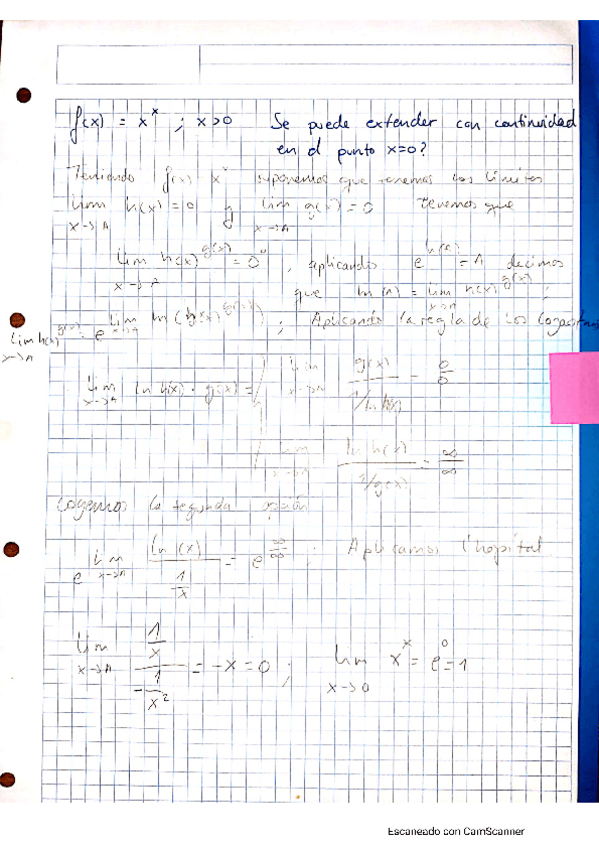 f(x) = x^x ; x>0 Se puede extender con continuidad
en el punto x=0?
Teniendo f(x) x^x suponemos que tenemos los límites
lim x->A h(x) = 0 y lim x->A g(x) = 0 tenemos que
lim h(x)^g(x) = 0^0 , aplicando e^ln(A) = A decimos
que ln(A) = lim h(x)^g(x) ;
lim x->A h(x)^g(x) = e^lim x->A ln(h(x)^g(x)) ; Aplicando la regla de los logaritmos
lim x->A ln h(x) · g(x) = lim x->A g(x) / 1/ln h(x) = 0/0
lim x->A ln h(x) / 1/g(x) = ∞/∞
Cogemos la segunda opción
e^lim x->A ln(x) / 1/x = e^∞/∞ ; Aplicamos l'hopital
lim x->A 1/x / -1/x² = -x = 0 ; lim x->0 x^x = e^0 = 1
Escaneado con CamScanner